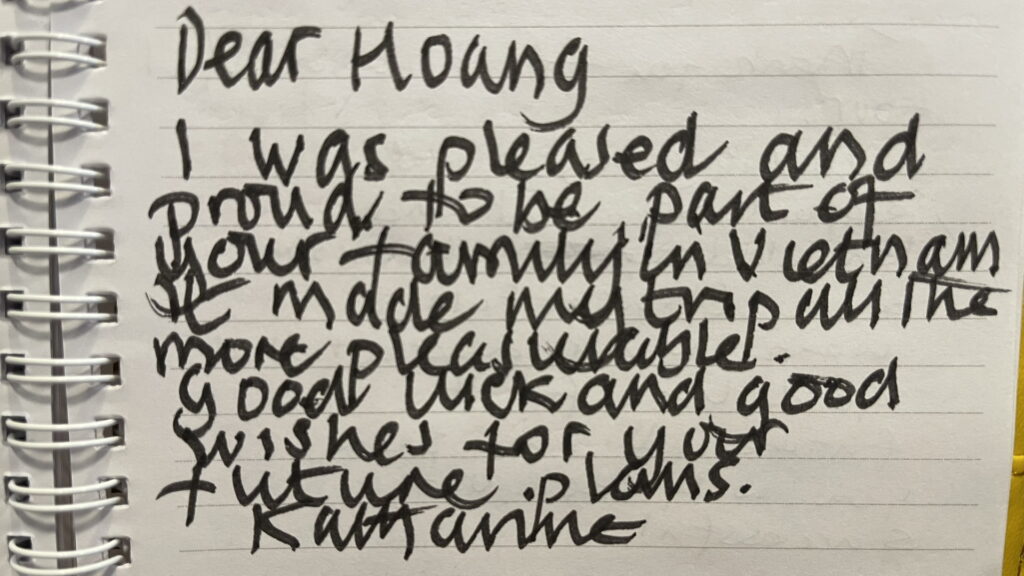 Dear Hoang
I was pleased and
proud to be part of
your family in Vietnam
It made my trip all the
more pleasurable.
Good luck and good
wishes for your
future plans.
Katharine